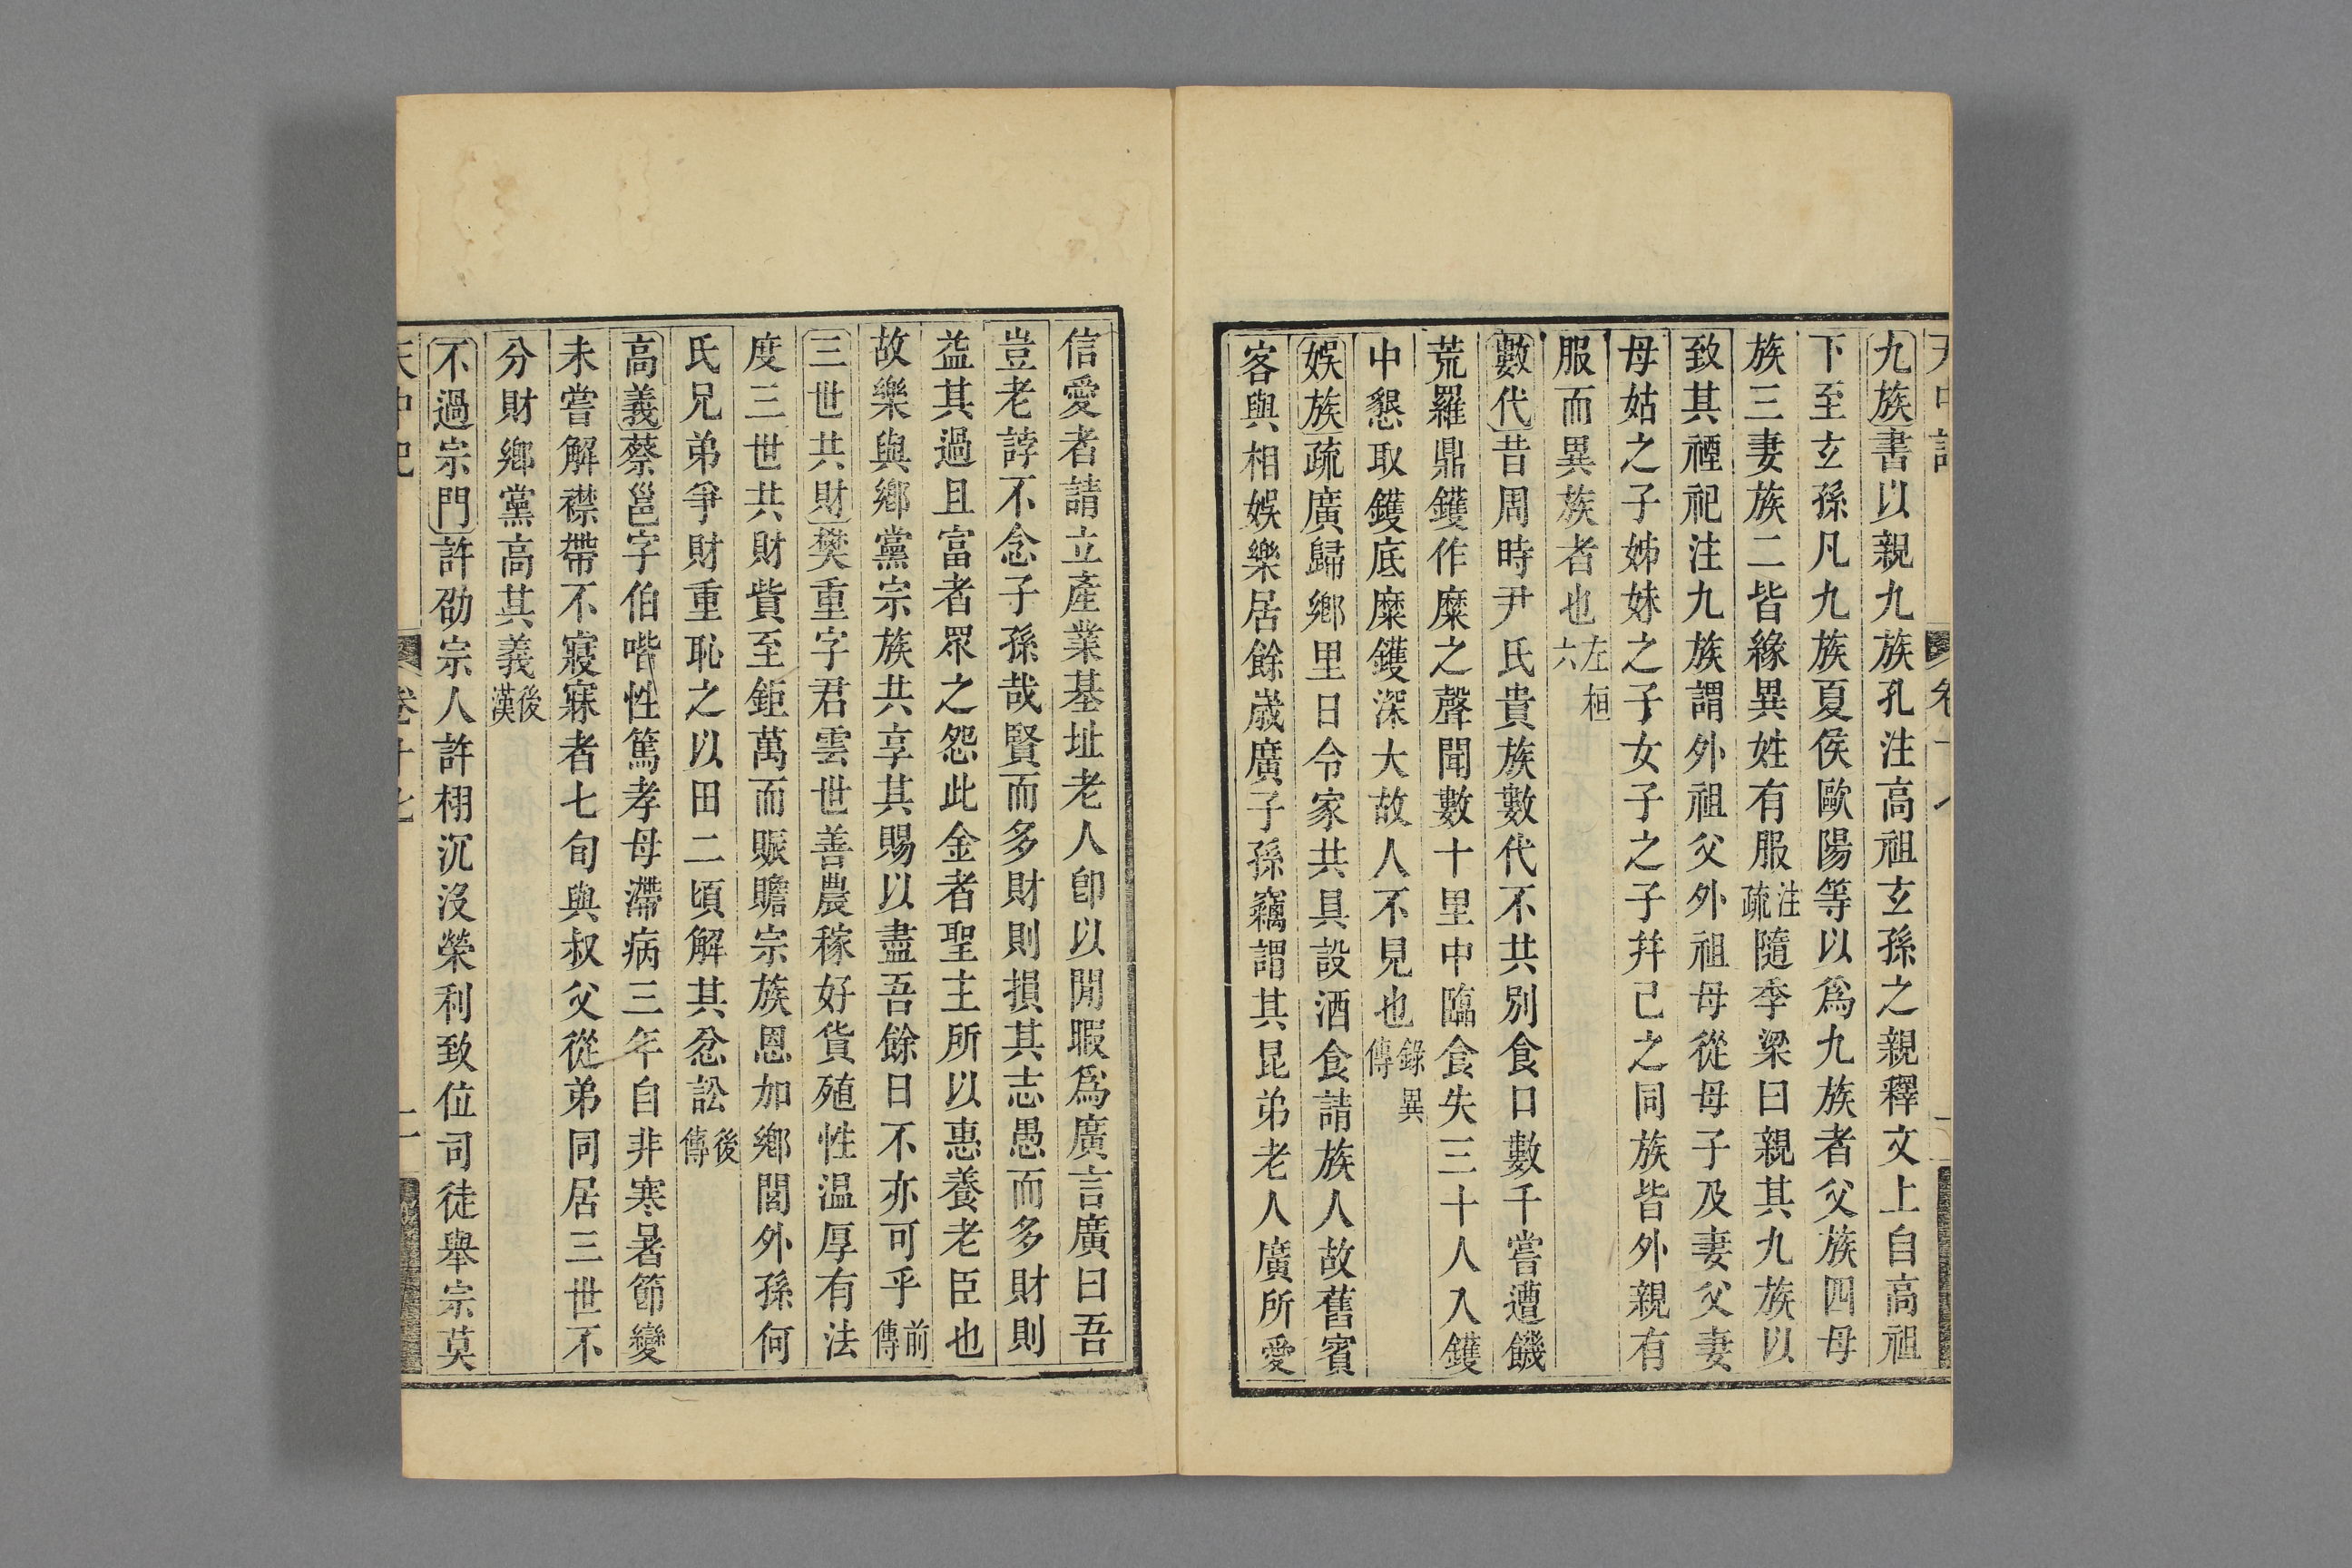 九族書以親九族孔注高祖玄孫之親釋文上自高祖
下至玄孫凡九族夏侯歐陽等以爲九族者父族四母
族三妻族二皆緣異姓有服注疏隨季梁曰親其九族以
致其禋祀注九族謂外祖父外祖母從母子及妻父妻
母姑之子姊妹之子女子之子并己之同族皆外親有
服而異族者也左桓六
數代昔周時尹氏貴族數代不共別食口數千嘗遭饑
荒羅鼎鑊作糜之聲聞數十里中臨食失三十人入鑊
中懇取鑊底糜鑊深大故人不見也錄異傳
娛族疏廣歸鄉里日令家共具設酒食請族人故舊賓
客與相娛樂居餘歲廣子孫竊謂其昆弟老人廣所愛
信愛者請立產業基址老人卽以閒暇爲廣言廣曰吾
豈老誖不念子孫哉賢而多財則損其志愚而多財則
益其過且富者眾之怨此金者聖主所以惠養老臣也
故樂與鄉黨宗族共享其賜以盡吾餘日不亦可乎前傳
三世共財樊重字君雲世善農稼好貨殖性温厚有法
度三世共財貲至鉅萬而賑贍宗族恩加鄉閭外孫何
氏兄弟爭財重恥之以田二頃解其忿訟後傳
高義蔡邕字伯喈性篤孝母滯病三年自非寒暑節變
未嘗解襟帶不寢寐者七旬與叔父從弟同居三世不
分財鄉黨高其義後漢
不過宗門許劭宗人許栩沉没榮利致位司徒舉宗莫